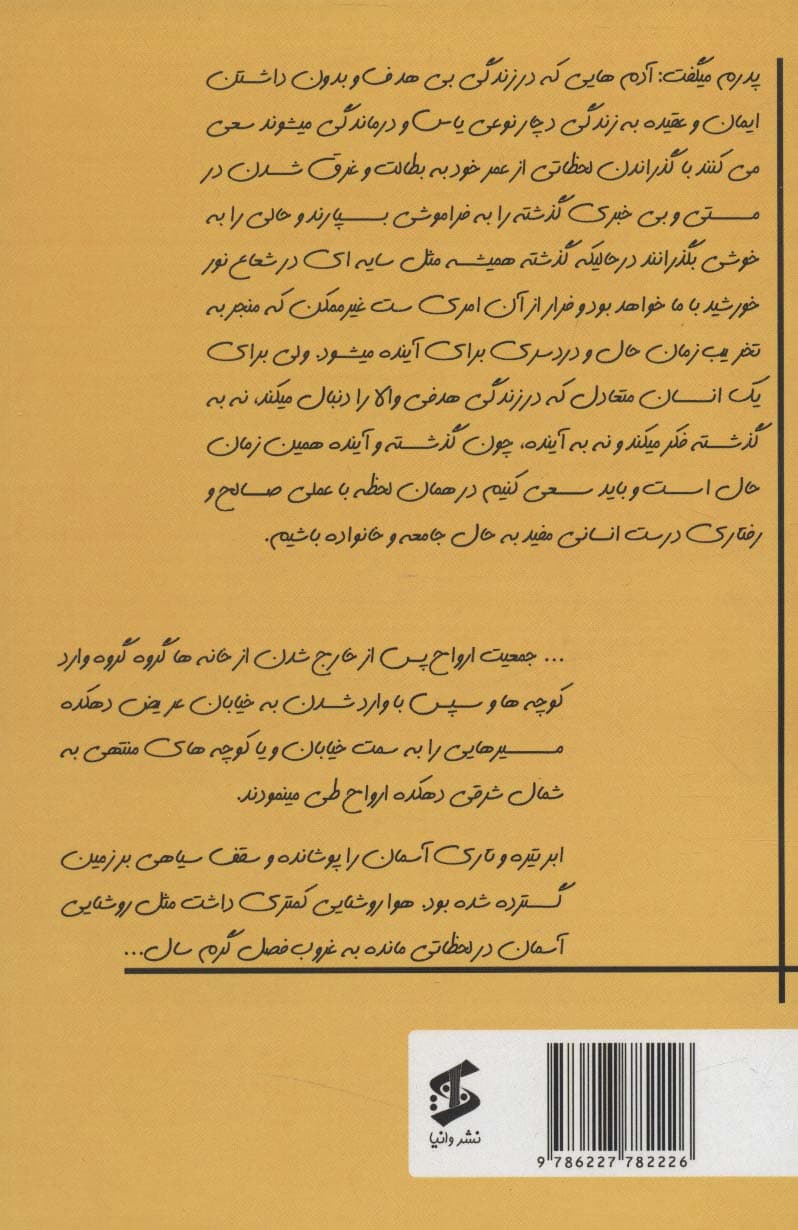 پدرم میگفت: آدم هایی که در زندگی بی هدف و بدون داشتن
ایمان و عقیده به زندگی دچار نوعی یاس و درماندگی میشوند سعی
می کنند با گذراندن لحظاتی از عمر خود به بطالت و غرق شدن در
مستی و بی خبری گذشته را به فراموشی بسپارند و حالی را به
خوشی بگذرانند در حالیکه گذشته همیشه مثل سایه ای در شعاع نور
خورشید با ما خواهد بود و فرار از آن امری ست غیرممکن که منجر به
تخریب زمان حال و دردسری برای آینده میشود. ولی برای
یک انسان متعادل که در زندگی هدفی والا را دنبال میکند، نه به
گذشته فکر میکند و نه به آینده، چون گذشته و آینده همین زمان
حال است و باید سعی کنیم در همان لحظه با عملی صالح و
رفتاری درست انسانی مفید به حال جامعه و خانواده باشیم.
... جمعیت ارواح پس از خارج شدن از خانه ها گروه گروه وارد
کوچه ها و سپس با وارد شدن به خیابان عریض دهکده
مسیرهایی را به سمت خیابان و یا کوچه های منتهی به
شمال شرقی دهکده ارواح طی مینمودند.
ابر تیره و تاری آسمان را پوشانده و سقف سیاهی بر زمین
گسترده شده بود. هوا روشنایی کمتری داشت مثل روشنایی
آسمان در لحظاتی مانده به غروب فصل گرم سال...
نشر وانیا
9 786227 782226